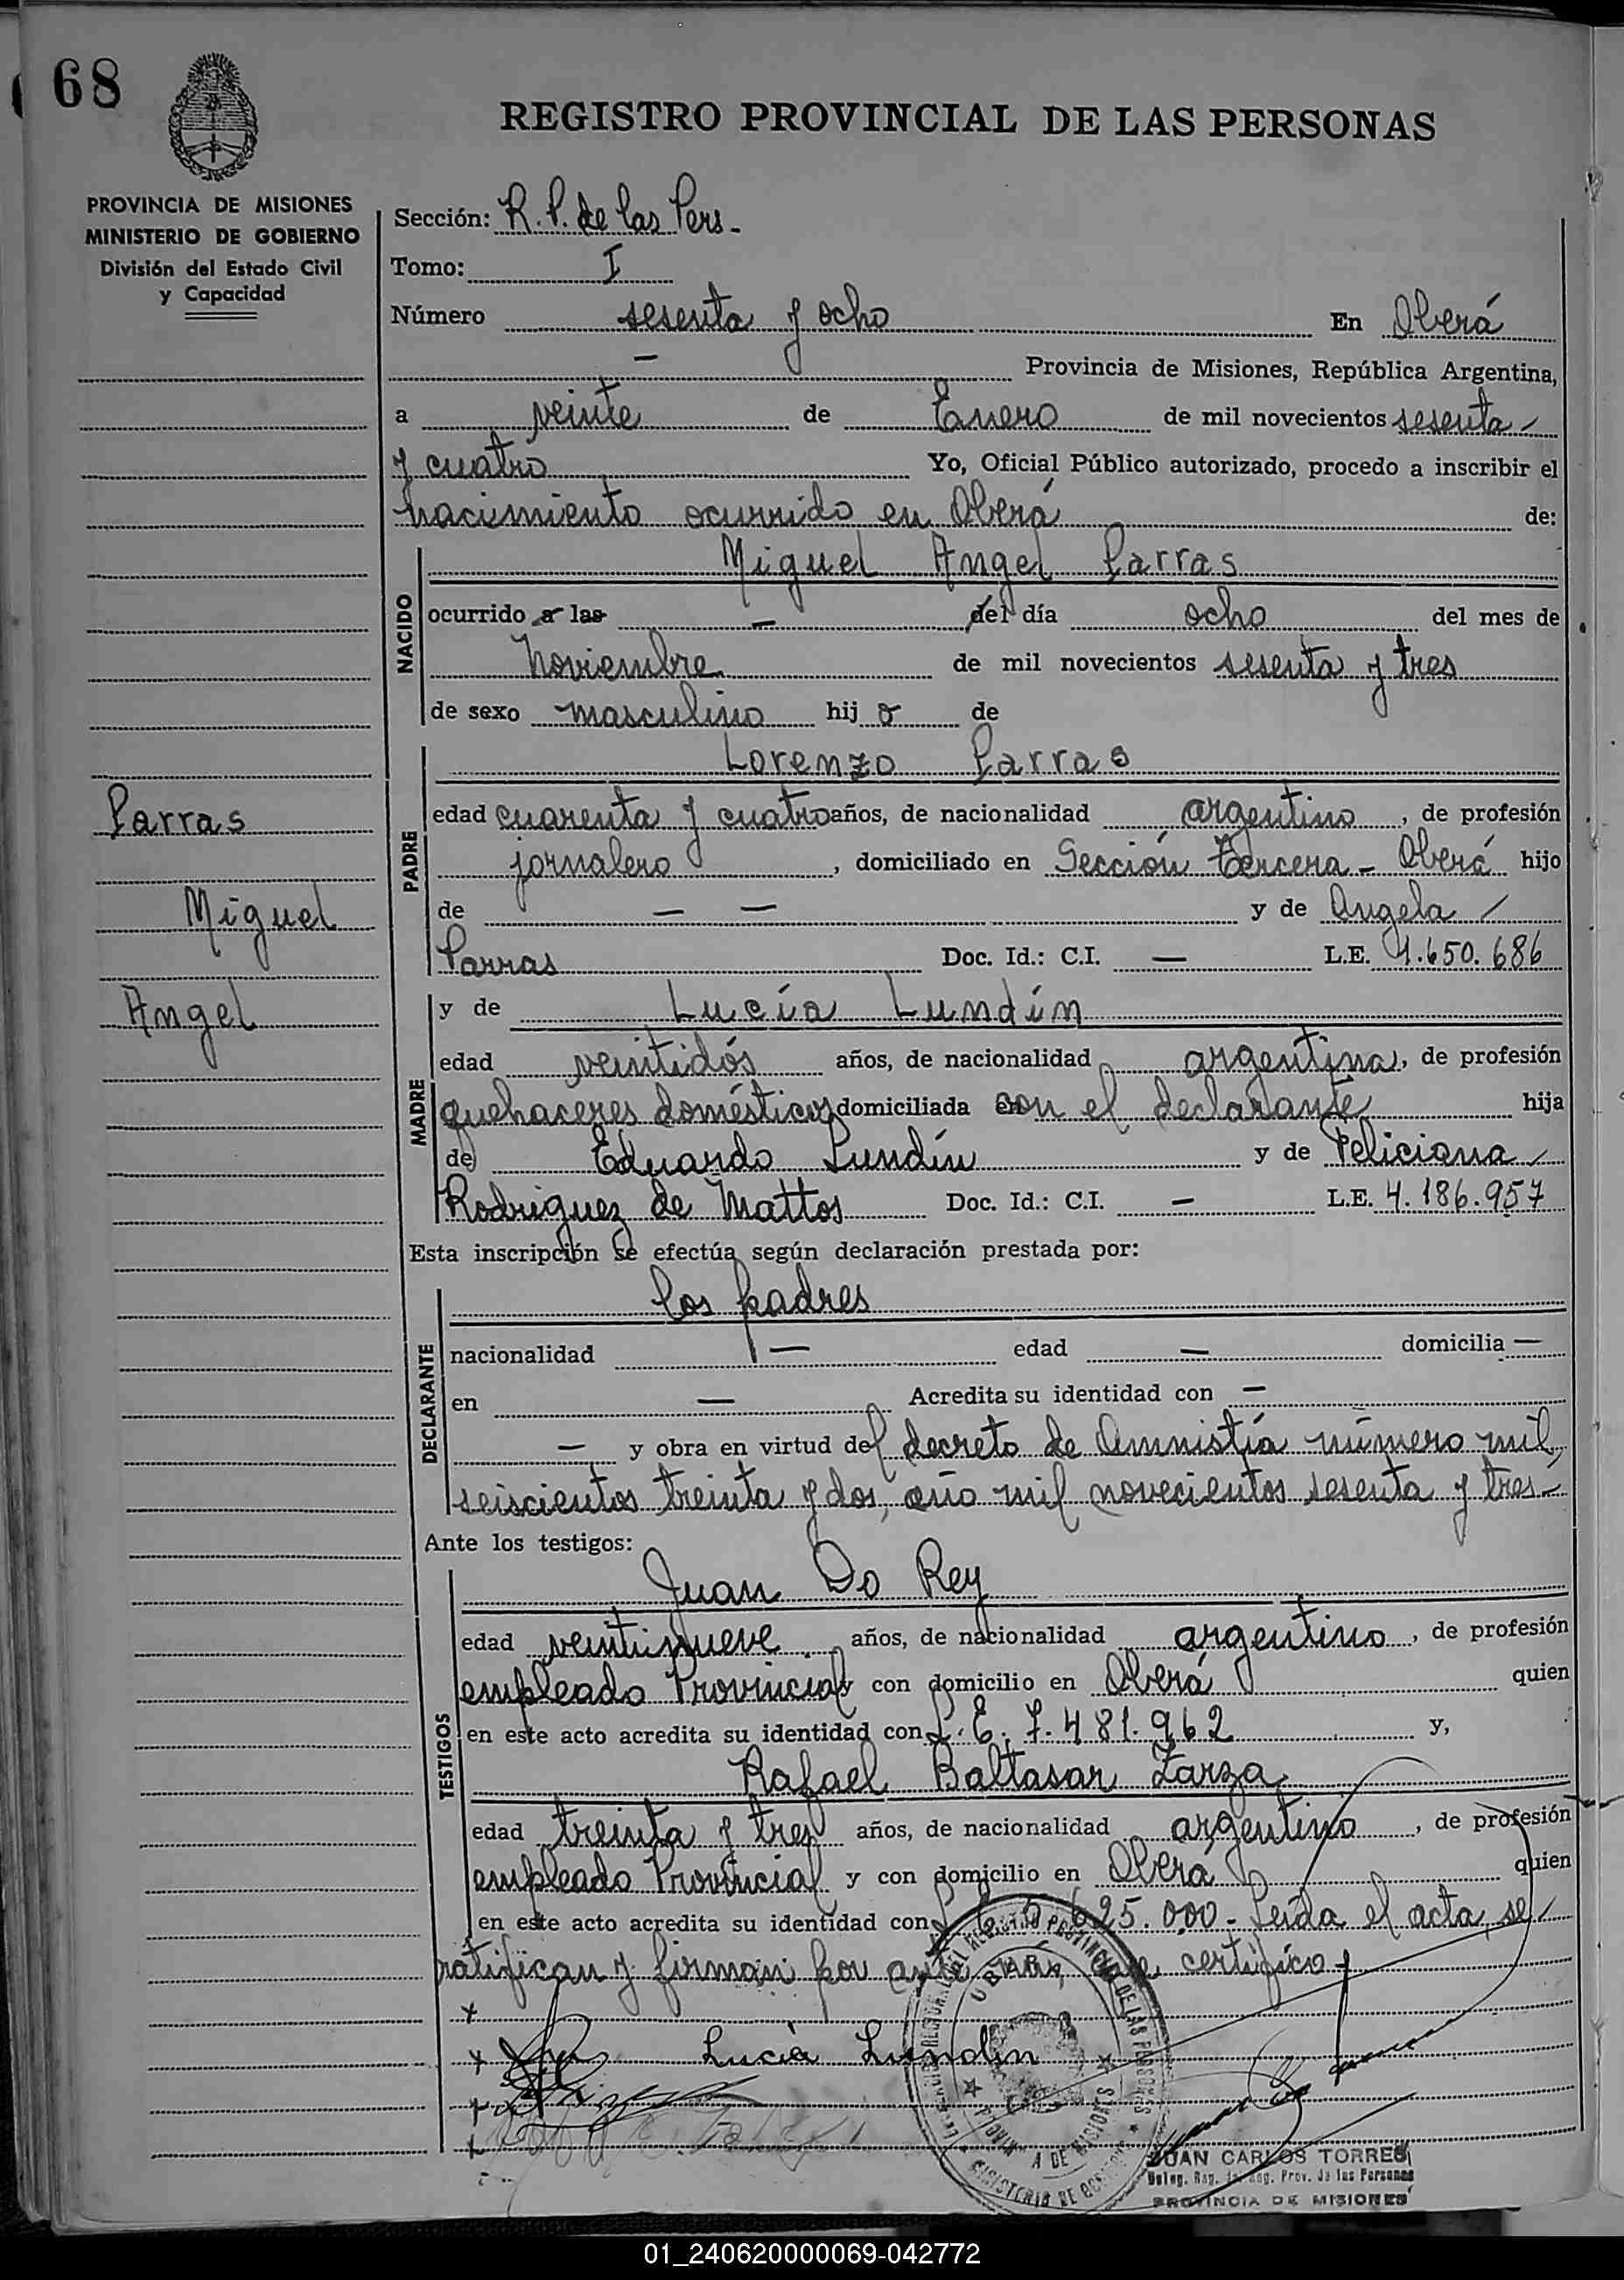 68
REGISTRO PROVINCIAL DE LAS PERSONAS
PROVINCIA DE MISIONES
MINISTERIO DE GOBIERNO
División del Estado Civil
y Capacidad
Sección: R. P. de las Pers-
Tomo: I
Número sesenta y ocho En Oberá
— Provincia de Misiones, República Argentina,
a veinte de Enero de mil novecientos sesenta
y cuatro Yo, Oficial Público autorizado, procedo a inscribir el
nacimiento ocurrido en Oberá de:
NACIDO
Miguel Angel Parras
ocurrido a las — del día ocho del mes de
Noviembre de mil novecientos sesenta y tres
de sexo masculino hij o de
PADRE
Lorenzo Parras
edad cuarenta y cuatro años, de nacionalidad argentino, de profesión
jornalero, domiciliado en Sección Tercera - Oberá hijo
de — — y de Angela
Parras Doc. Id.: C.I. — L.E. 4.650.686
Parras
Miguel
Angel
MADRE
y de Lucía Lundín
edad veintidós años, de nacionalidad argentina, de profesión
quehaceres domésticos domiciliada con el declarante hija
de Eduardo Lundín y de Feliciana
Rodriguez de Mattos Doc. Id.: C.I. — L.E. 4.186.957
Esta inscripción se efectúa según declaración prestada por:
DECLARANTE
los padres
nacionalidad — edad — domicilia —
en — Acredita su identidad con —
— y obra en virtud del decreto de Amnistía número mil
seiscientos treinta y dos, año mil novecientos sesenta y tres-
Ante los testigos:
TESTIGOS
Juan Do Rey
edad veintinueve años, de nacionalidad argentino, de profesión
empleado Provincial y con domicilio en Oberá quien
en este acto acredita su identidad con L.E. 7.481.962 y,
Rafael Baltasar Zarza
edad treinta y tres años, de nacionalidad argentino, de profesión
empleado Provincial y con domicilio en Oberá quien
en este acto acredita su identidad con 695.000- Leída el acta, se
ratifican y firman por ante mí, que certifico
Lucía Lundin
OBERA
JUAN CARLOS TORRES
Prov. de las Personas
PROVINCIA DE MISIONES
01_240620000069-042772